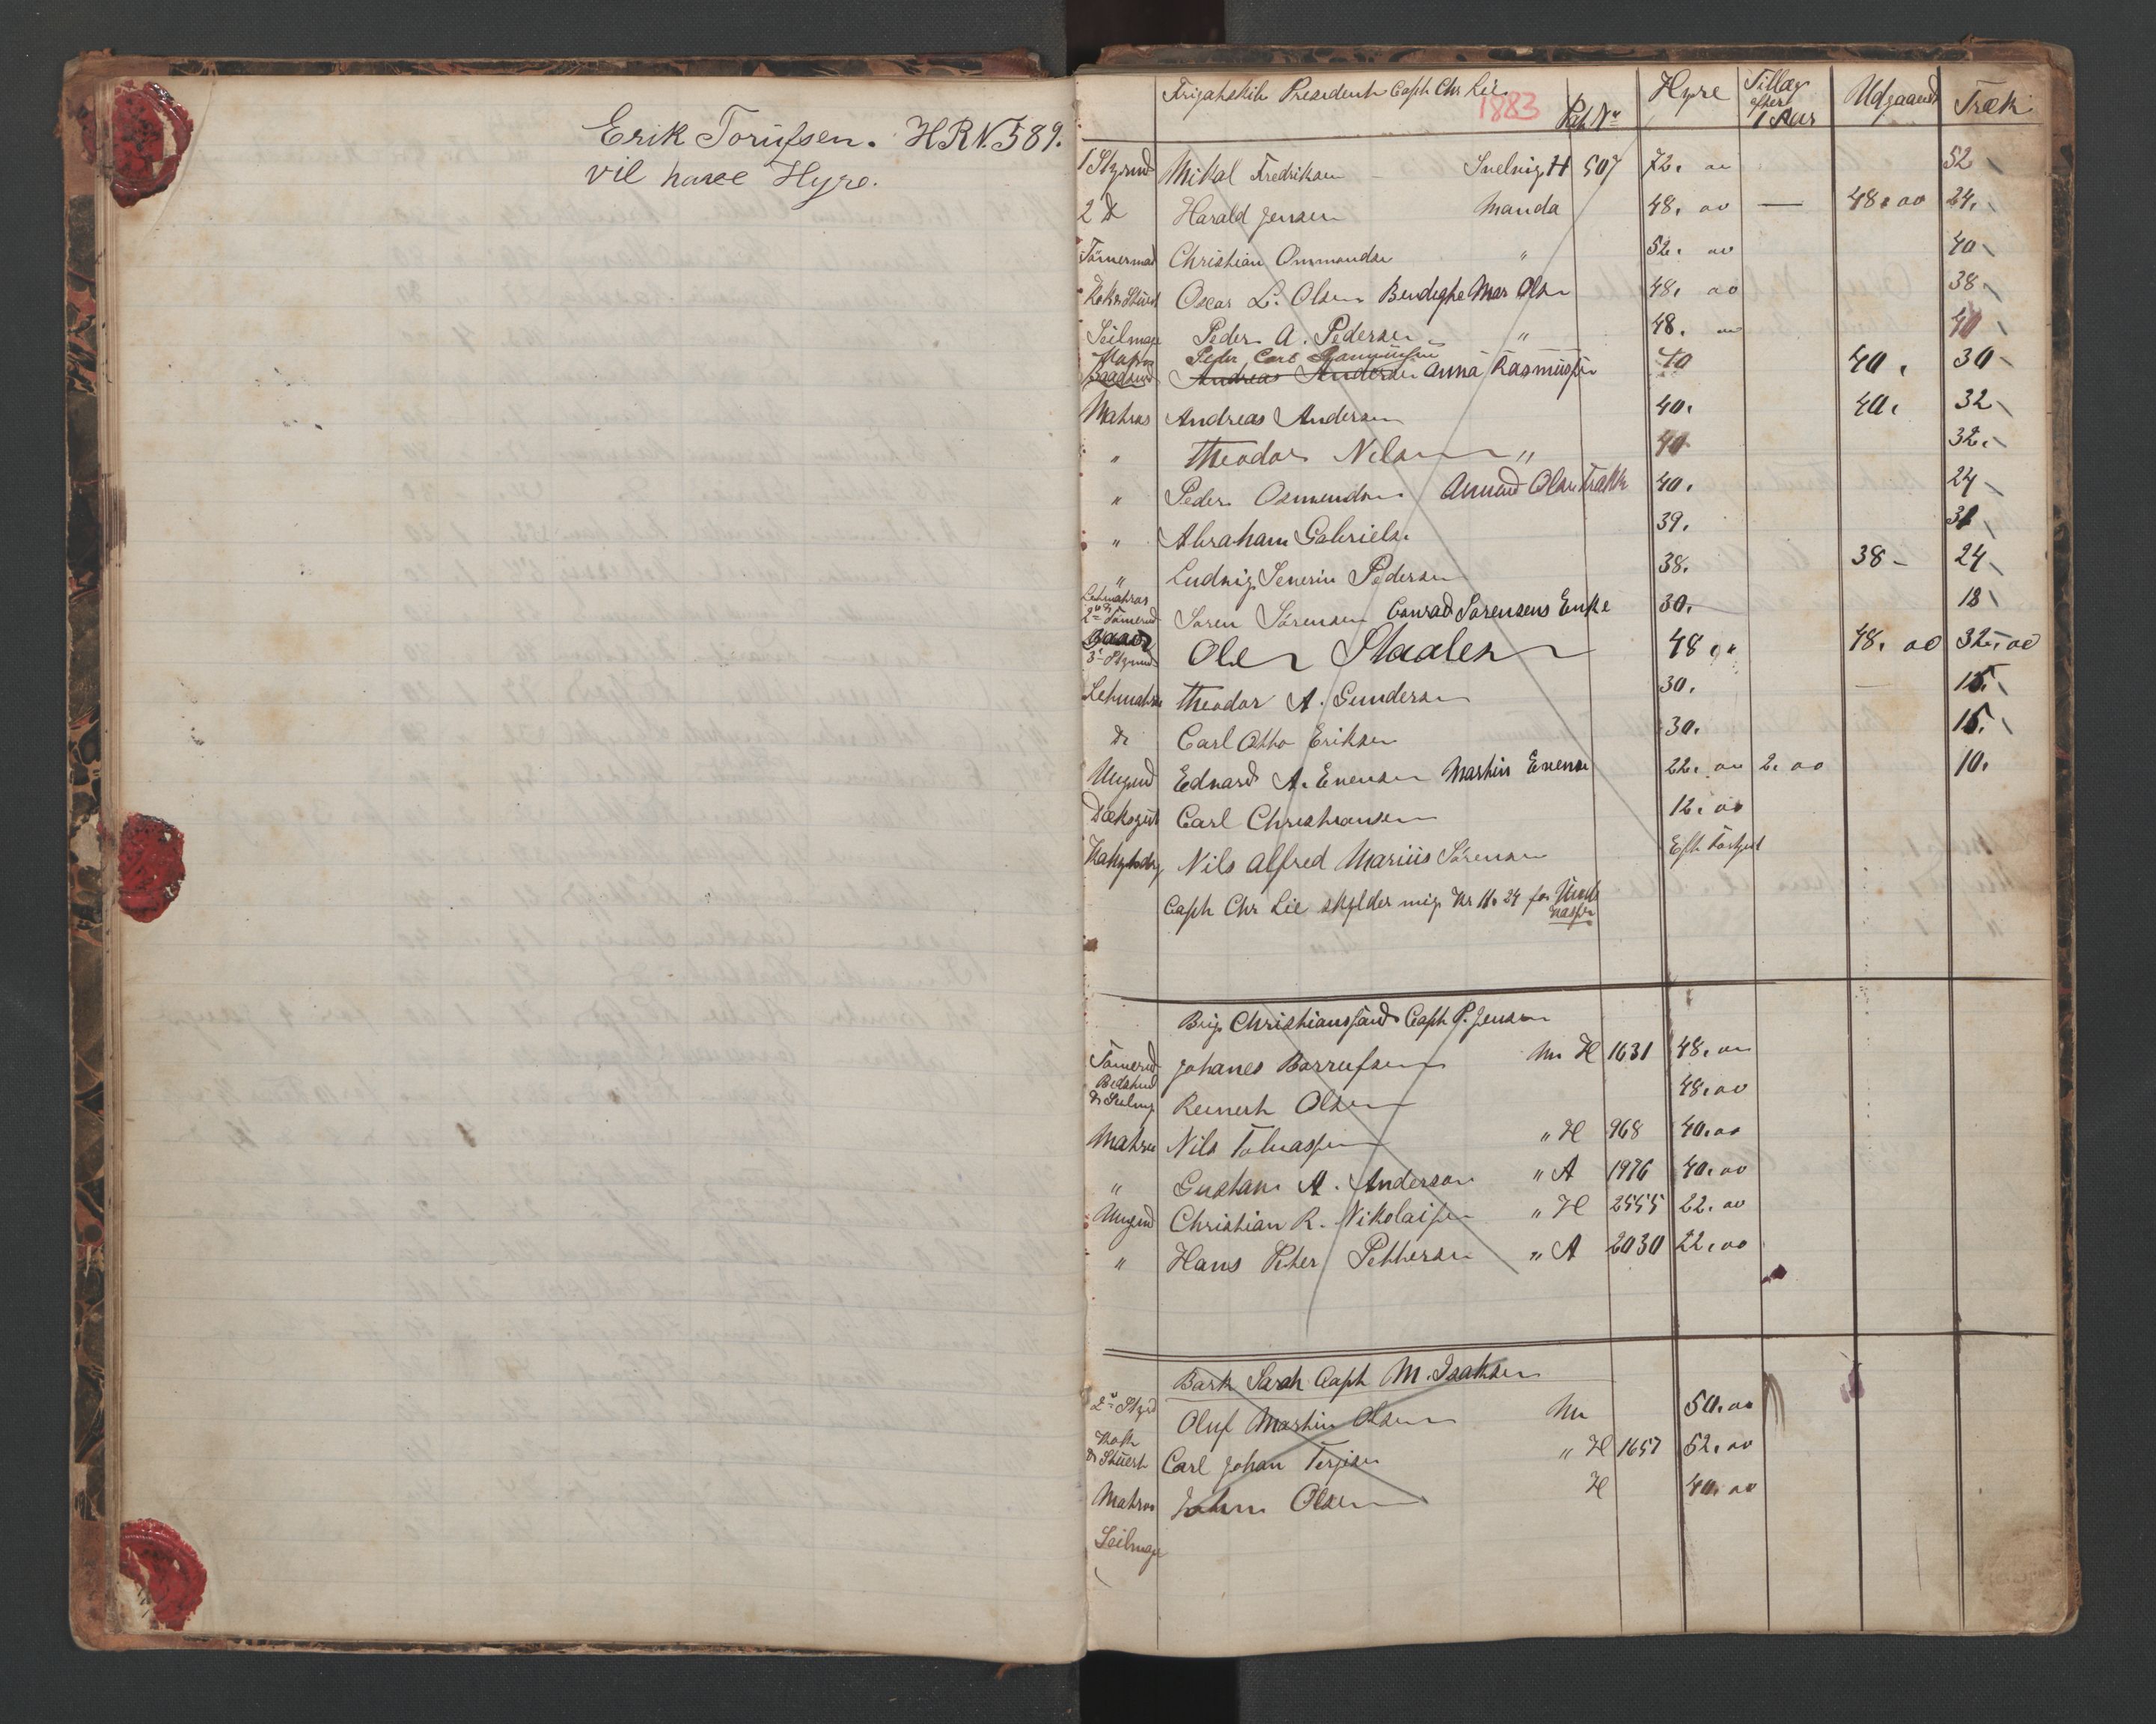 Erik Torüfsen. H R N. 589.
vil have Hyre.
Fregatskib President Capt Chr Lie
1883
Pat No Hyre Tillæg efter 1 Aar Udgaaende Træk
1 Styrmd Mikal Fredriksen Snelvig H 507 72. 00 52
2 Do Harald Jensen Manda 48. 00 — 48. 00 24.
Tömermd Christian Ommundse " 52. 00 40
Kok & Stüert Oscar L. Olsen Bendeghe Mar Olsen 48. 00 38
Seilmager Peder A. Pedersen " 48. 00 40
Matros Peder Carl Rasmüssen
Baadsmd Andreas Andersen Anna Rasmüssen 40 40. 30
Matros Andreas Andersen 40. 40. 32
" Theodor Nilsen " 40 32.
" Peder Osmundsen Amund Olsen Trakk 40. 24
" Abraham Gabriels. 39. 31
" Ludvig Severin Pedersen 38. 38 24
Letmatros
2den Tömermd Sören Sörensen Conrad Sørensens Enke 30. 18
Baads
3e Styrmd Olen Staalesen 48 " 48. 00 32. 00
Letmatros Theodor A. Gundersen 30. — 15.
Do Carl Otto Eriksen 30. 15.
Ungmd Edvard A. Evensen Martin Evense 22. 00 2. 00 10.
Dæksgüt Carl Christiansen 12. 00
Kahytsdrg Nils Alfred Marius Sörensen Eft Fortjent
Capt Chr Lie skylder mig Kr 11. 24 for
Brig Christianssand Capt P. Jensen
Tömermd Johanes Barrufsen Mn H 1631 48. 00
Bedstmd
& Seilmg Reinert Olsen 48. 00
Matros Nils Tobiassen " H 968 40. 00
" Gustav A. Anderson " A 1976 40. 00
Ungmd Christian R. Nikolaisen " H 2555 22. 00
" Hans Peter Pettersen " A 2030 22. 00
Bark Sarah Capt M. Isaksen
2n Styrd Oluf Martin Olsen Mn 50. 00
Kok
& Stüert Carl Johan Terjesen " H 1657 52. 00
Matros John Olsen H 40. 00
Seilmager